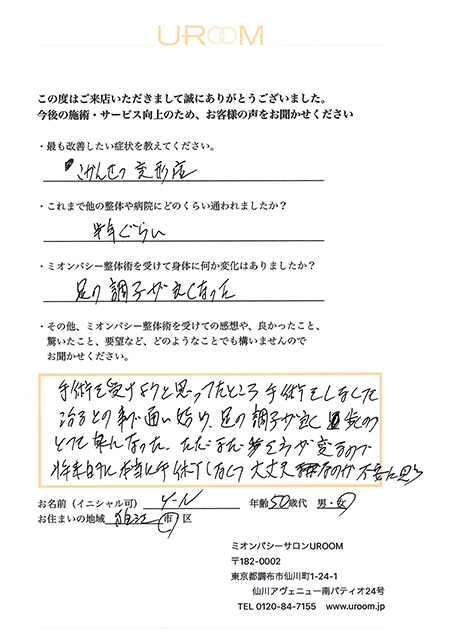 UROOM
この度はご来店いただきまして誠にありがとうございました。
今後の施術・サービス向上のため、お客様の声をお聞かせください
・最も改善したい症状を教えてください。
こかんせつ変形症
・これまで他の整体や病院にどのくらい通われましたか？
半年ぐらい
・ミオンパシー整体術を受けて身体に何か変化はありましたか？
足の調子が良くなった
・その他、ミオンパシー整体術を受けての感想や、良かったこと、
驚いたこと、要望など、どのようなことでも構いませんので
お聞かせください。
手術を受けようと思ってたところ手術をしなくて
治るとの事で通い始め、足の調子が良く
とても楽になった。ただまだ歩き方が変なので
将来的に本当に手術なしで大丈夫なのか不安に思う
お名前（イニシャル可） Y-N 年齢 50歳代 男・女
お住まいの地域 狛江 市 区
ミオンパシーサロンUROOM
〒182-0002
東京都調布市仙川町1-24-1
仙川アヴェニュー南パティオ24号
TEL 0120-84-7155 www.uroom.jp